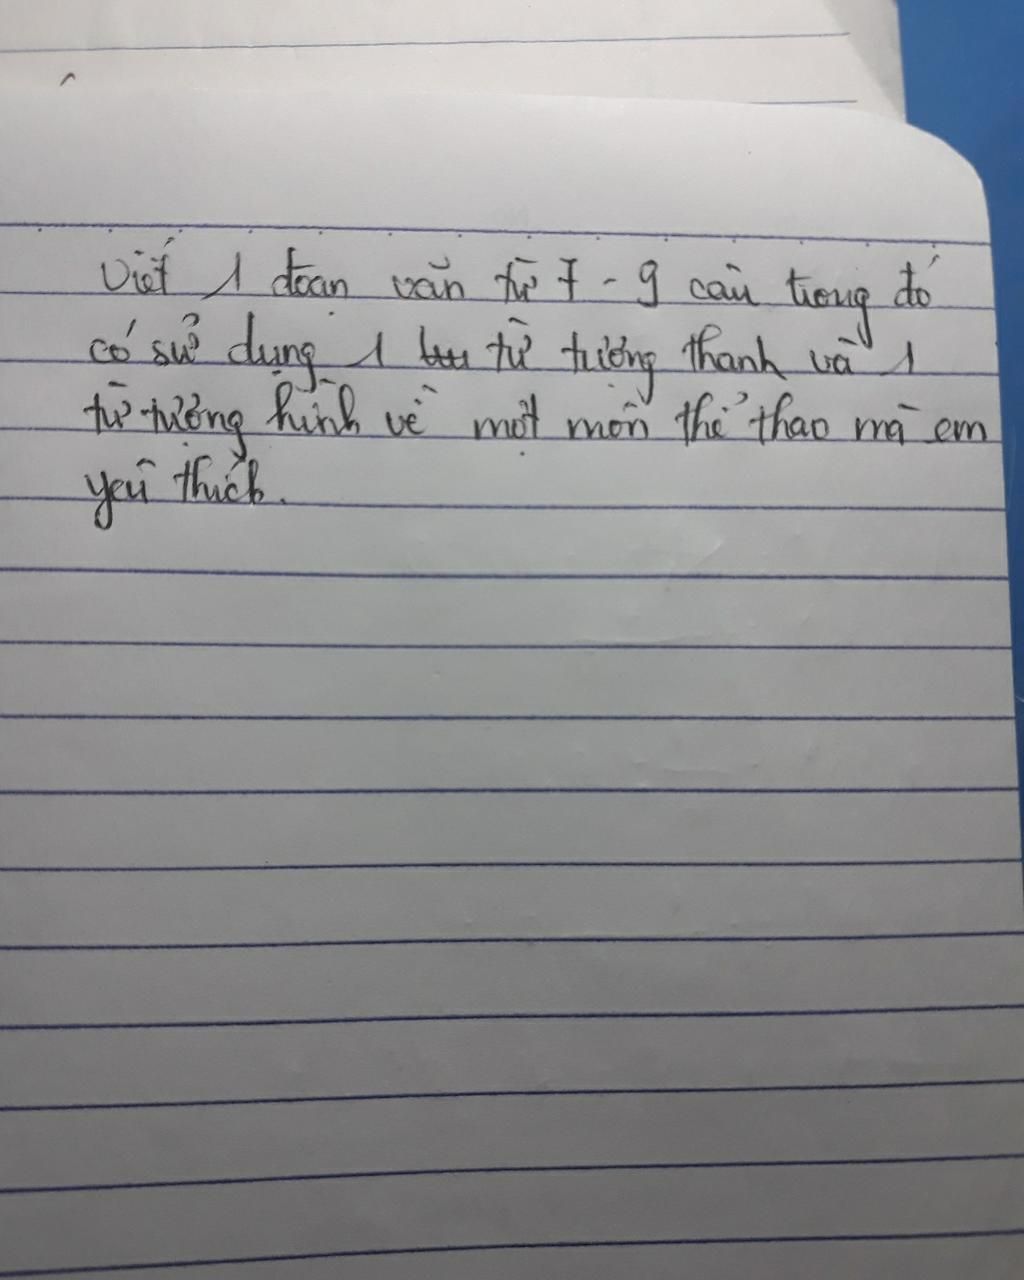 Viết 1 đoạn văn từ 7 - 9 câu trong đó
có sử dụng 1 từ tượng thanh và 1
từ tượng hình về một môn thể thao mà em
yêu thích.